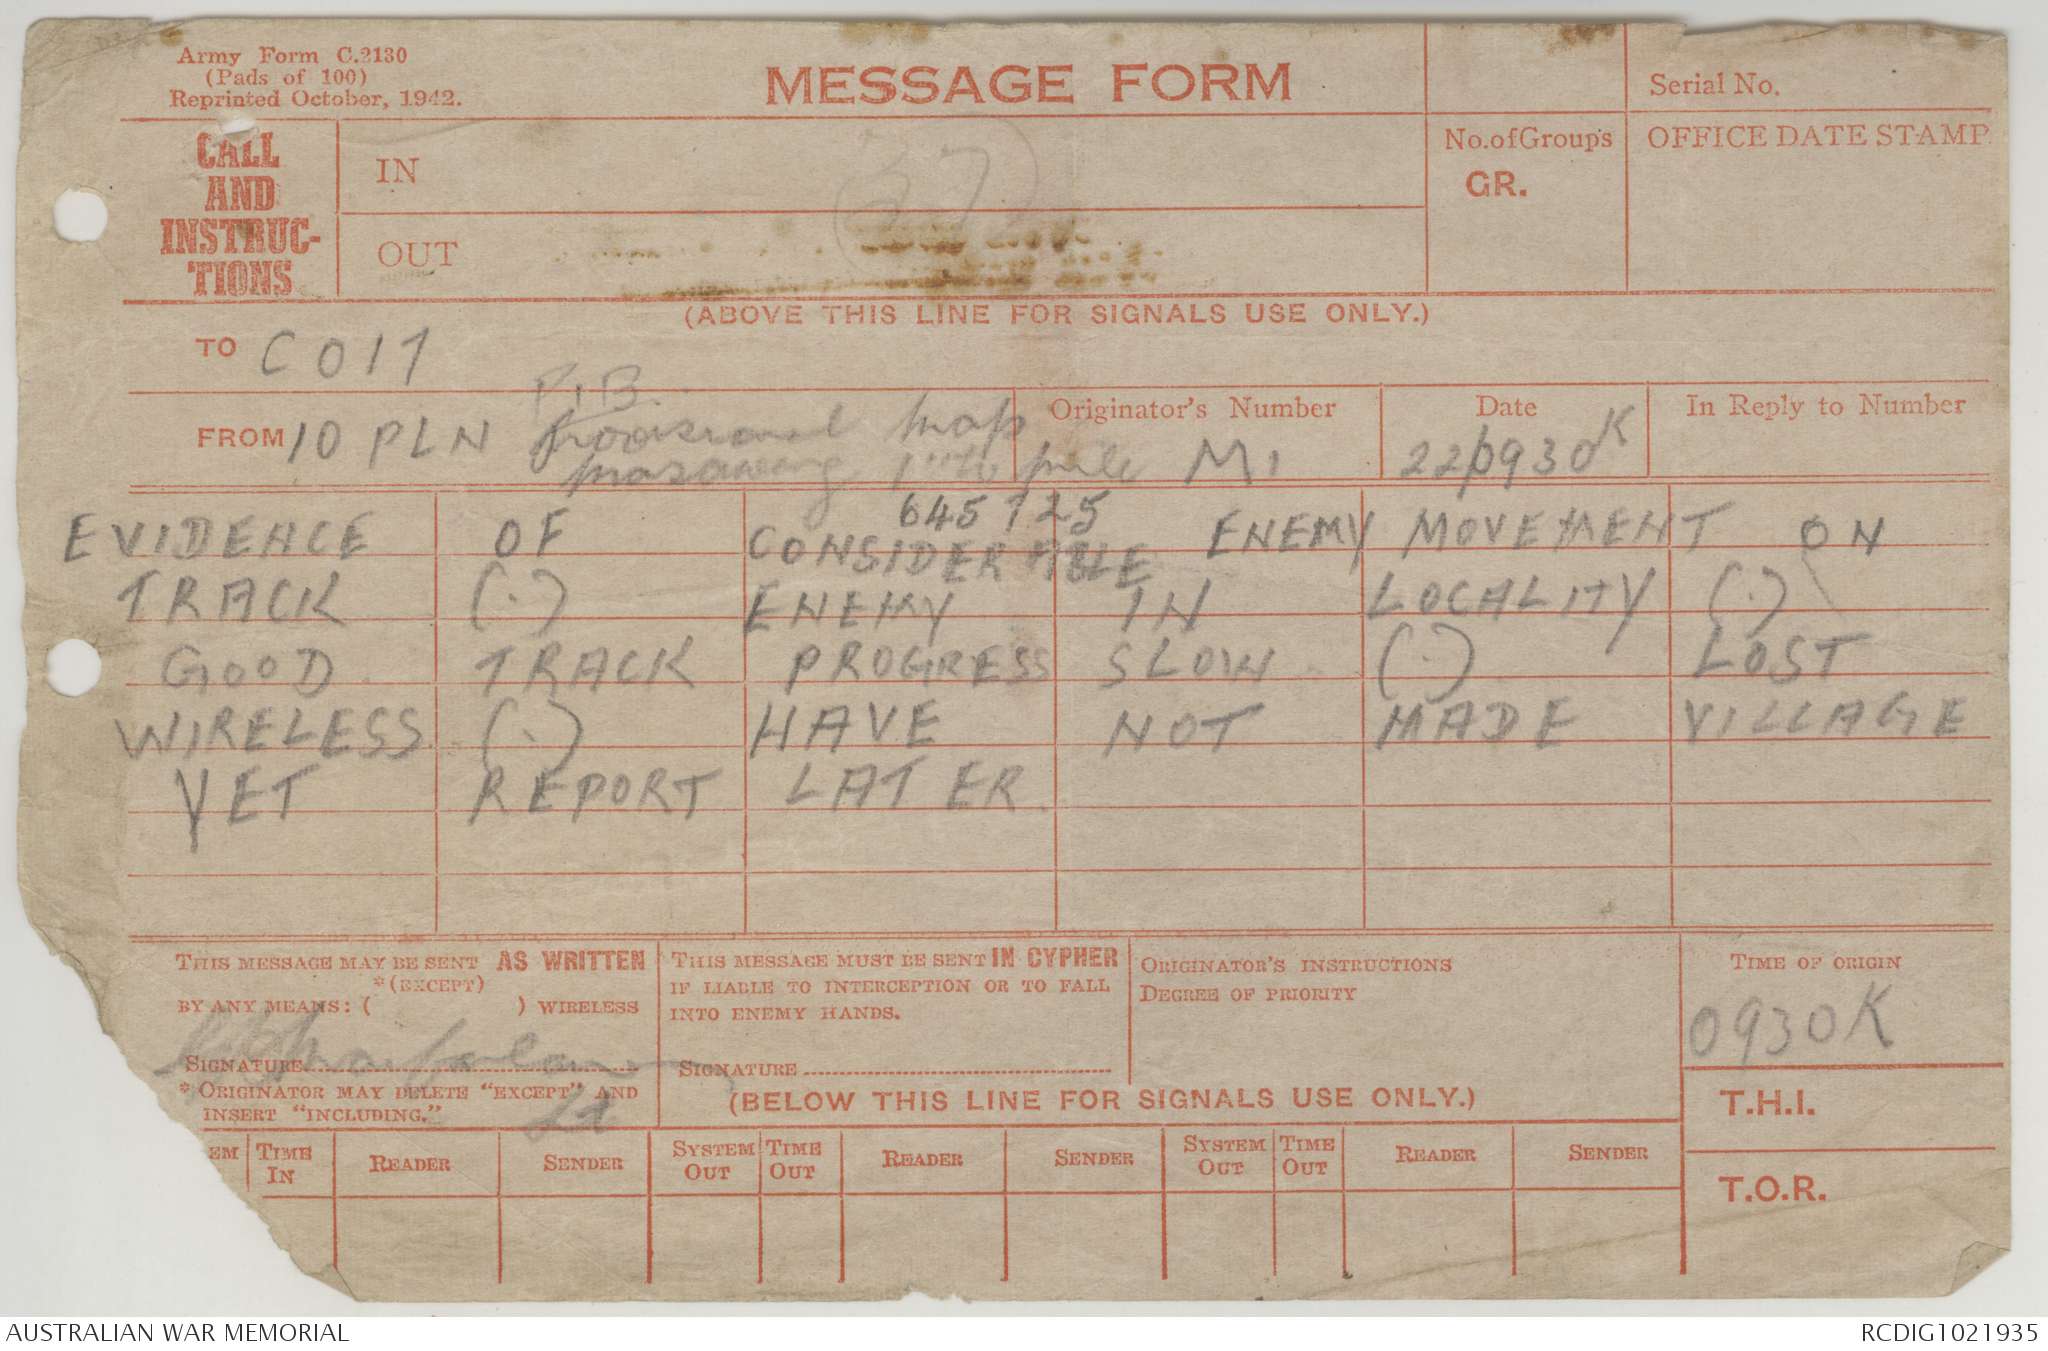 Army Form C.2130
(Pads of 100)
Reprinted October, 1942.
MESSAGE FORM
Serial No.
CALL
AND
INSTRUC-
TIONS
IN
27
No. of Groups
GR.
OFFICE DATE STAMP
OUT
(ABOVE THIS LINE FOR SIGNALS USE ONLY.)
TO CO 17
P.I.B.
FROM 10 PLN Provisional Map
Masaweng 1" to mile
Originator's Number
M1
Date
22/0930K
In Reply to Number
645725
EVIDENCE OF CONSIDERABLE ENEMY MOVEMENT ON
TRACK (.) ENEMY IN LOCALITY (.)
GOOD TRACK PROGRESS SLOW (.) LOST
WIRELESS (.) HAVE NOT MADE VILLAGE
YET REPORT LATER
THIS MESSAGE MAY BE SENT AS WRITTEN
*(EXCEPT)
BY ANY MEANS: ( ) WIRELESS
SIGNATURE
* ORIGINATOR MAY DELETE "EXCEPT" AND
INSERT "INCLUDING."
Lt
THIS MESSAGE MUST BE SENT IN CYPHER
IF LIABLE TO INTERCEPTION OR TO FALL
INTO ENEMY HANDS.
SIGNATURE
ORIGINATOR'S INSTRUCTIONS
DEGREE OF PRIORITY
TIME OF ORIGIN
0930K
(BELOW THIS LINE FOR SIGNALS USE ONLY.)
T.H.I.
EM TIME IN READER SENDER SYSTEM OUT TIME OUT READER SENDER SYSTEM OUT TIME OUT READER SENDER
T.O.R.
AUSTRALIAN WAR MEMORIAL
RCDIG1021935